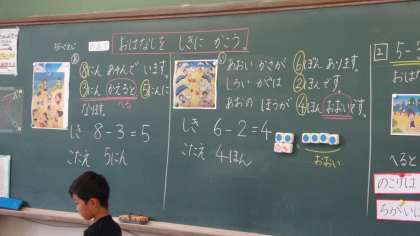 おはなしを しきに かこう。
8にん あそんで います。
3にん かえると 5にんに
へる
なります。
しき 8-3=5
こたえ 5にん
あおい かさが 6ぽん あります。
しろい かさは 2ほんです。
あおの ほうが 4ほん おおいです。
しき 6-2=4
こたえ 4ほん
おおい
2 5-
おは
へると
のこりは
ちがいは